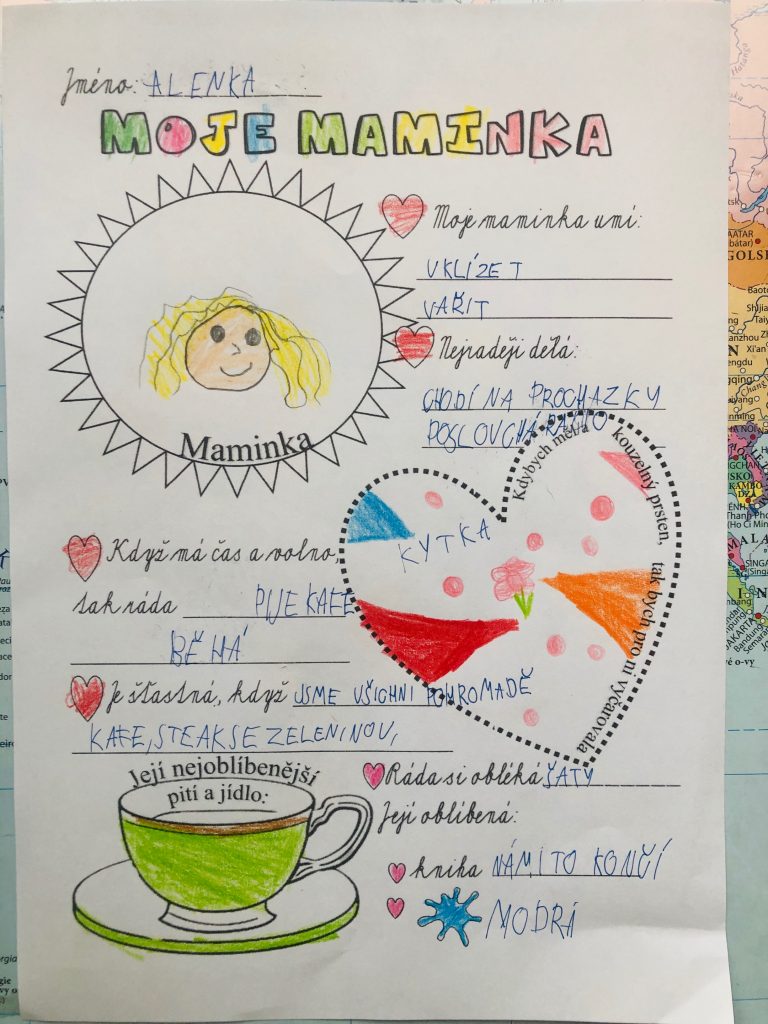 Jméno: ALENKA
MOJE MAMINKA
Maminka
Moje maminka umí:
UKLÍZET
VAŘIT
Nejraději dělá:
CHODÍ NA PROCHAZKY
POSLOUCHÁ RÁDIO
Kdybych měl/a kouzelný prsten, tak bych pro ni vyčarovala
KYTKA
Když má čas a volno,
tak ráda PIJE KAFE
BĚHÁ
Je šťastná, když JSME VŠICHNI POHROMADĚ
KAFE, STEAK SE ZELENINOU,
Její nejoblíbenější
pití a jídlo:
Ráda si obléká ŠATY
Její oblíbená:
kniha NÁMI TO KONČÍ
MODRÁ
GOLS
Xi'an